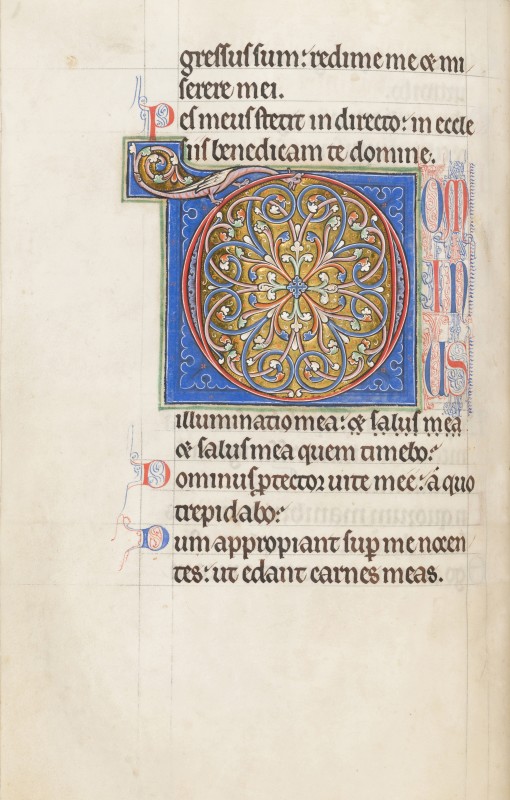 gressus sum: redime me & mi
serere mei.
Pes meus stetit in directo: in eccle
siis benedicam te domine.
Dominus
illuminatio mea: & salus mea
& salus mea quem timebo:
Dominus ꝓtector uite mee: a quo
trepidabo:
Dum appropiant suꝑ me nocen
tes: ut edant carnes meas.